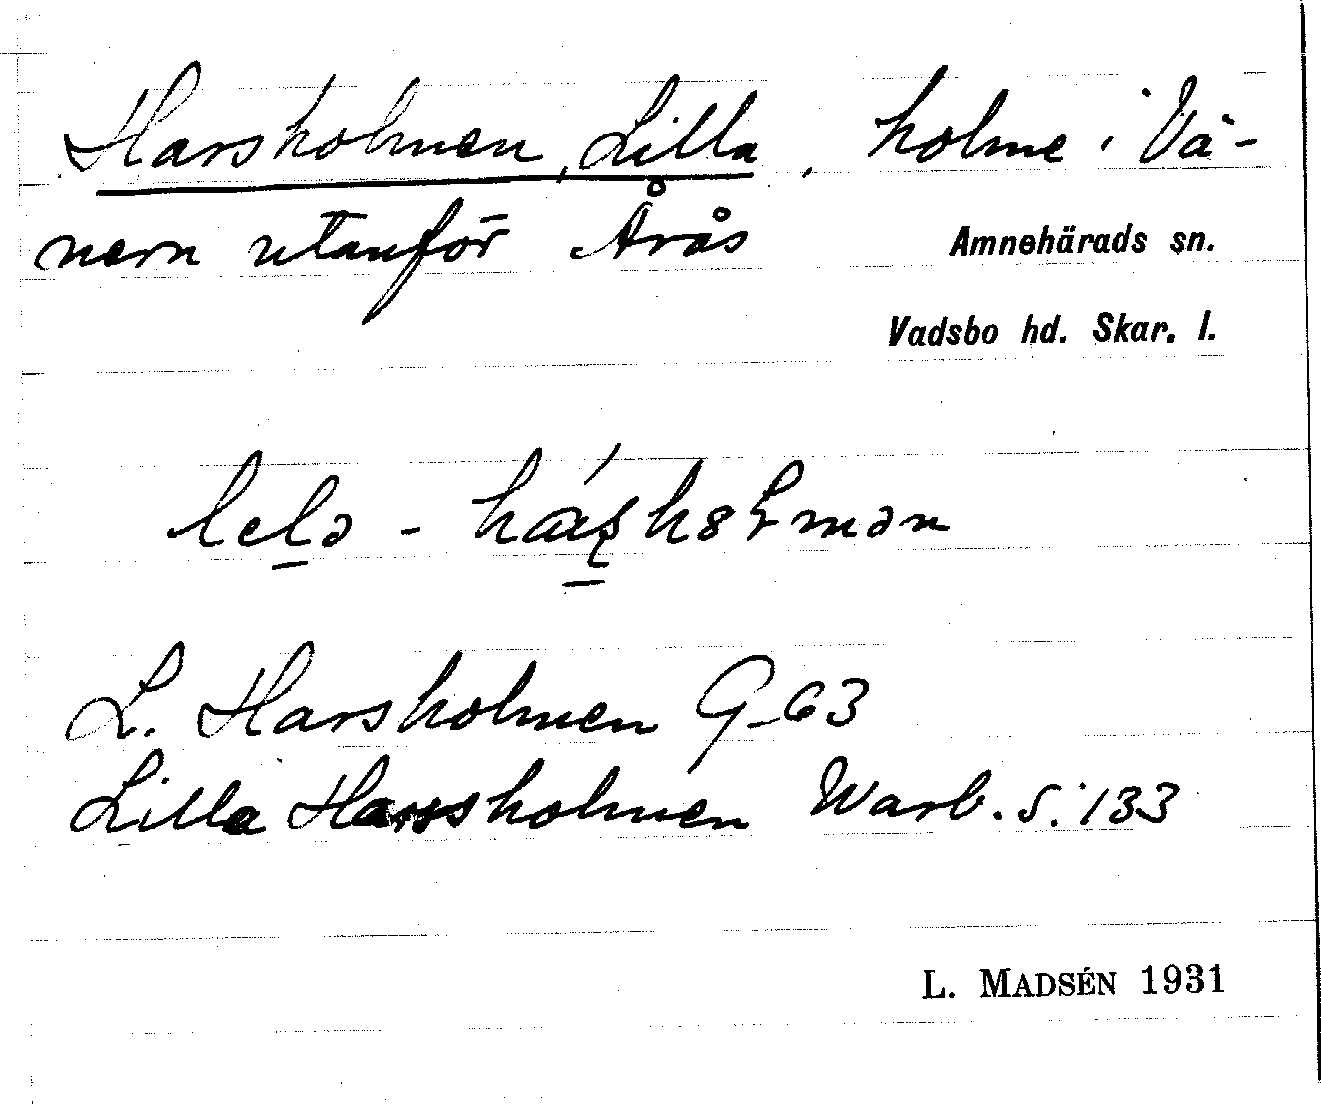 Harsholmen, Lilla, holme i Vä-
nern utanför Årås
Amnehärads sn.
Vadsbo hd. Skar. l.
L. Harsholmen G-63
Lilla Harsholmen Warb. S. 133
L. MADSÉN 1931